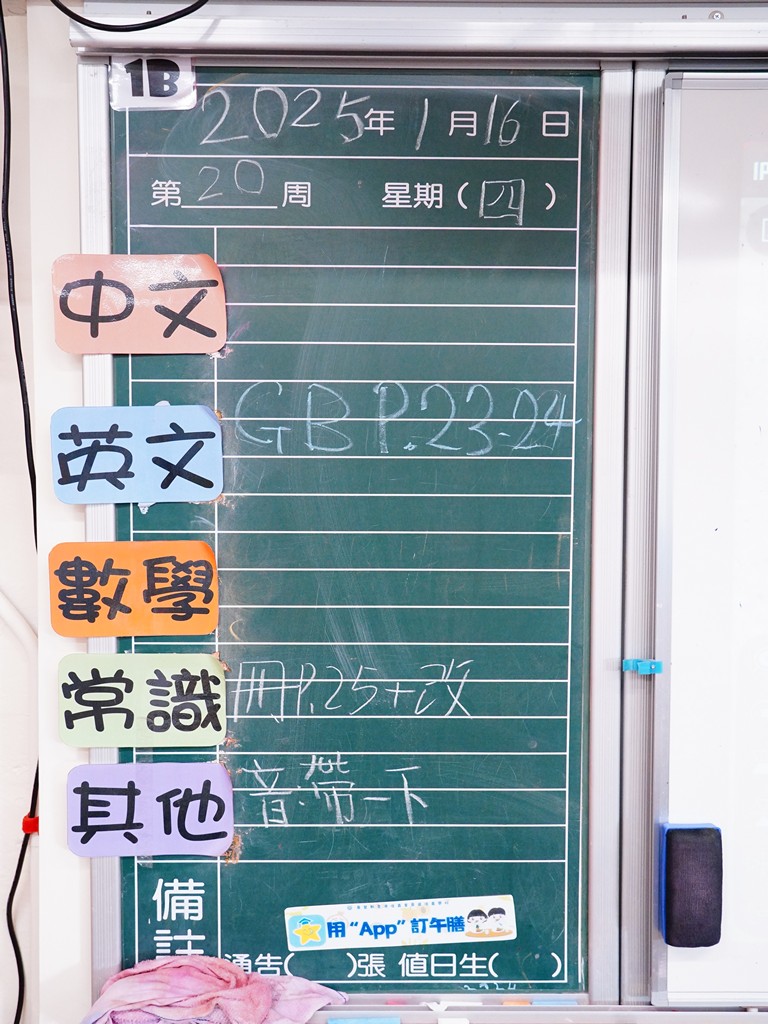 1B
2025年1月16日
第20周 星期(四)
中文
英文 GB P.23-24
數學
常識 冊P.25+改
其他 音:帶一下
備註
用“App”訂午膳
通告( )張 值日生( )